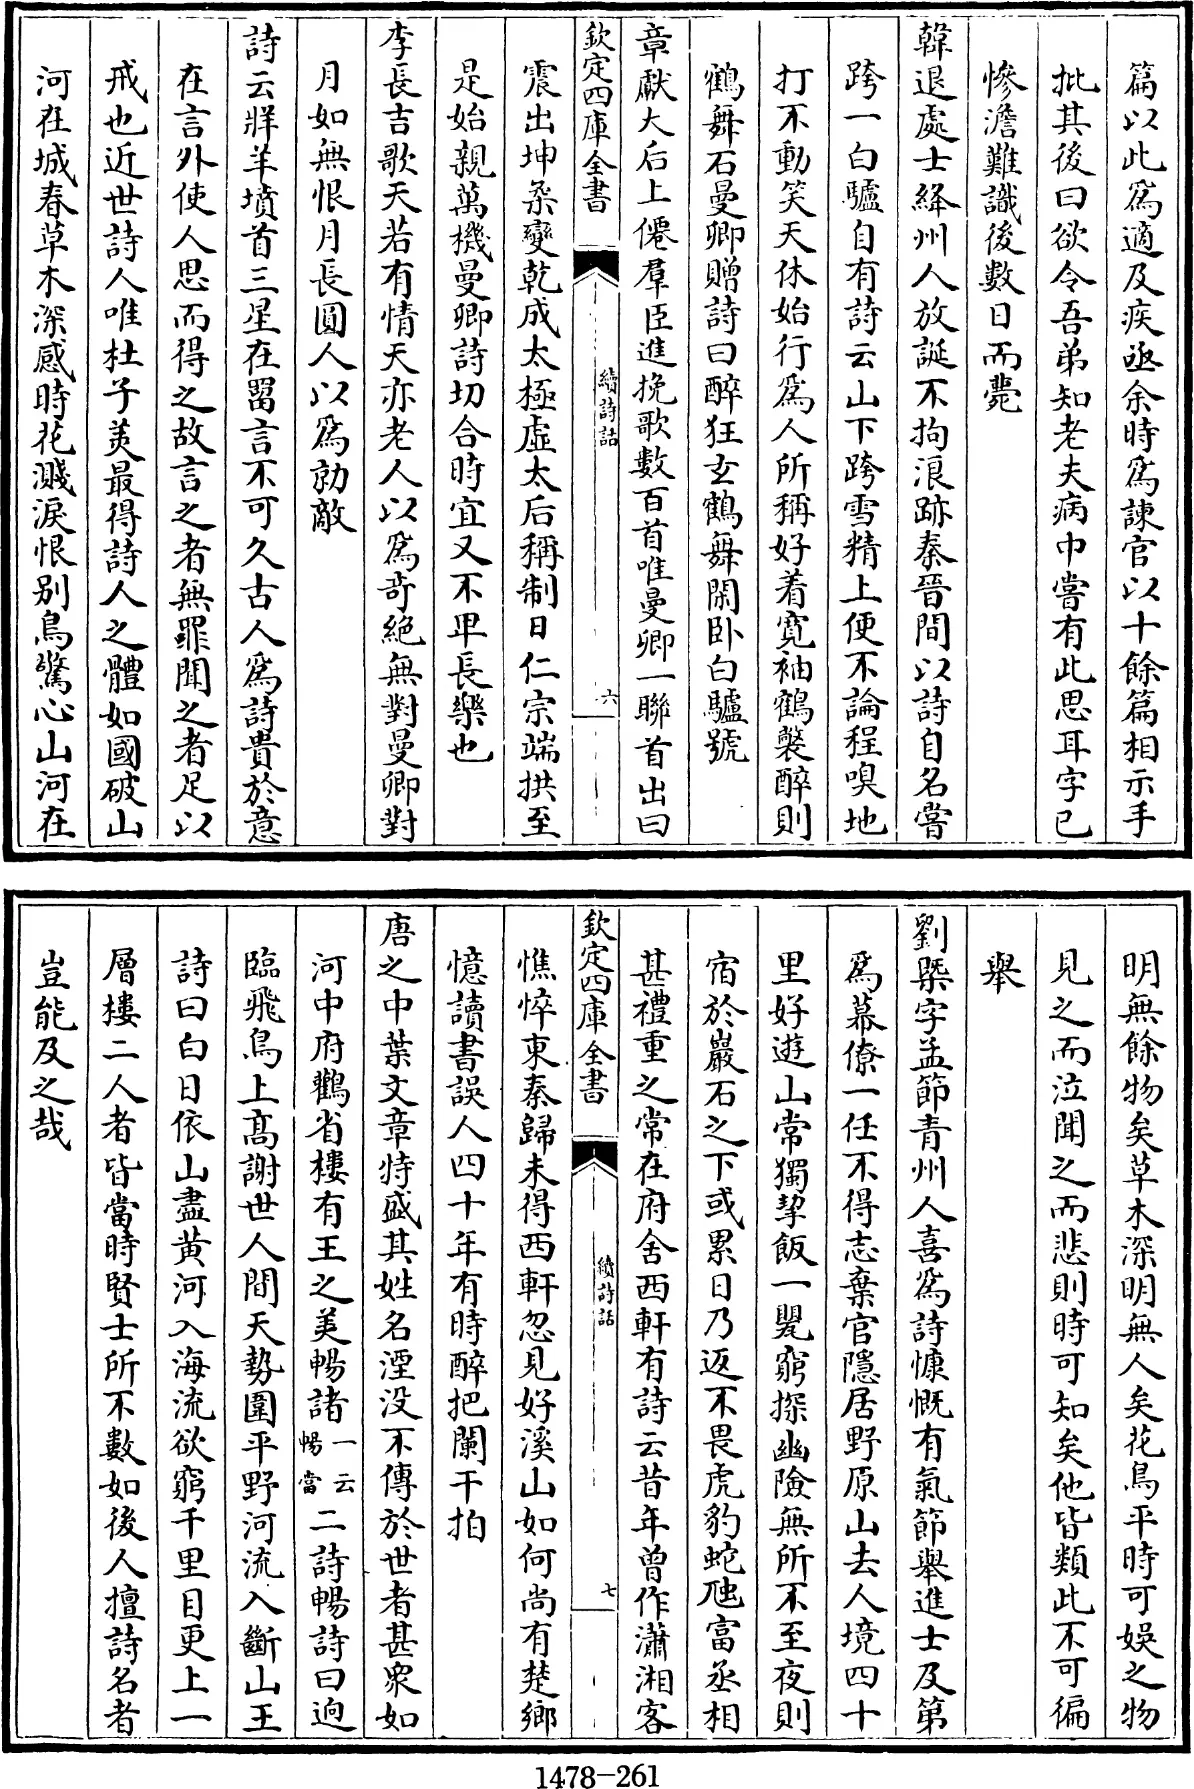 篇以此爲適及疾亟余時爲諫官以十餘篇相示手
批其後曰欲令吾弟知老夫病中嘗有此思耳字已
慘澹難識後數日而薨
韓退處士絳州人放誕不拘浪跡秦晉間以詩自名嘗
跨一白驢自有詩云山下跨雪精上便不論程嗅地
打不動笑天休始行爲人所稱好着寛袖鶴氅醉則
鶴舞石曼卿贈詩曰醉狂玄鶴舞閑卧白驢號
章獻太后上僊羣臣進挽歌數百首唯曼卿一聯首出曰
欽定四庫全書
續詩話
六
震出坤柔變乾成太極虛太后稱制日仁宗端拱至
是始親萬機曼卿詩切合時宜又不卑長樂也
李長吉歌天若有情天亦老人以爲奇絶無對曼卿對
月如無恨月長圓人以爲勍敵
詩云牂羊墳首三星在罶言不可久古人爲詩貴於意
在言外使人思而得之故言之者無罪聞之者足以
戒也近世詩人唯杜子美最得詩人之體如國破山
河在城春草木深感時花濺淚恨别鳥驚心山河在
明無餘物矣草木深明無人矣花鳥平時可娛之物
見之而泣聞之而悲則時可知矣他皆類此不可徧
舉
劉槩字孟節青州人喜爲詩慷慨有氣節舉進士及第
爲幕僚一任不得志棄官隱居野原山去人境四十
里好遊山常獨挈飯一甖窮探幽險無所不至夜則
宿於巖石之下或累日乃返不畏虎豹蛇虺富丞相
甚禮重之常在府舍西軒有詩云昔年曾作瀟湘客
欽定四庫全書
續詩話
七
憔悴東秦歸未得西軒忽見好溪山如何尚有楚鄉
憶讀書誤人四十年有時醉把闌干拍
唐之中葉文章特盛其姓名湮没不傳於世者甚衆如
河中府鸛雀樓有王之美暢諸一云暢當二詩暢詩曰逈
臨飛鳥上髙謝世人間天勢圍平野河流入斷山王
詩曰白日依山盡黄河入海流欲窮千里目更上一
層樓二人者皆當時賢士所不數如後人擅詩名者
豈能及之哉
1478-261